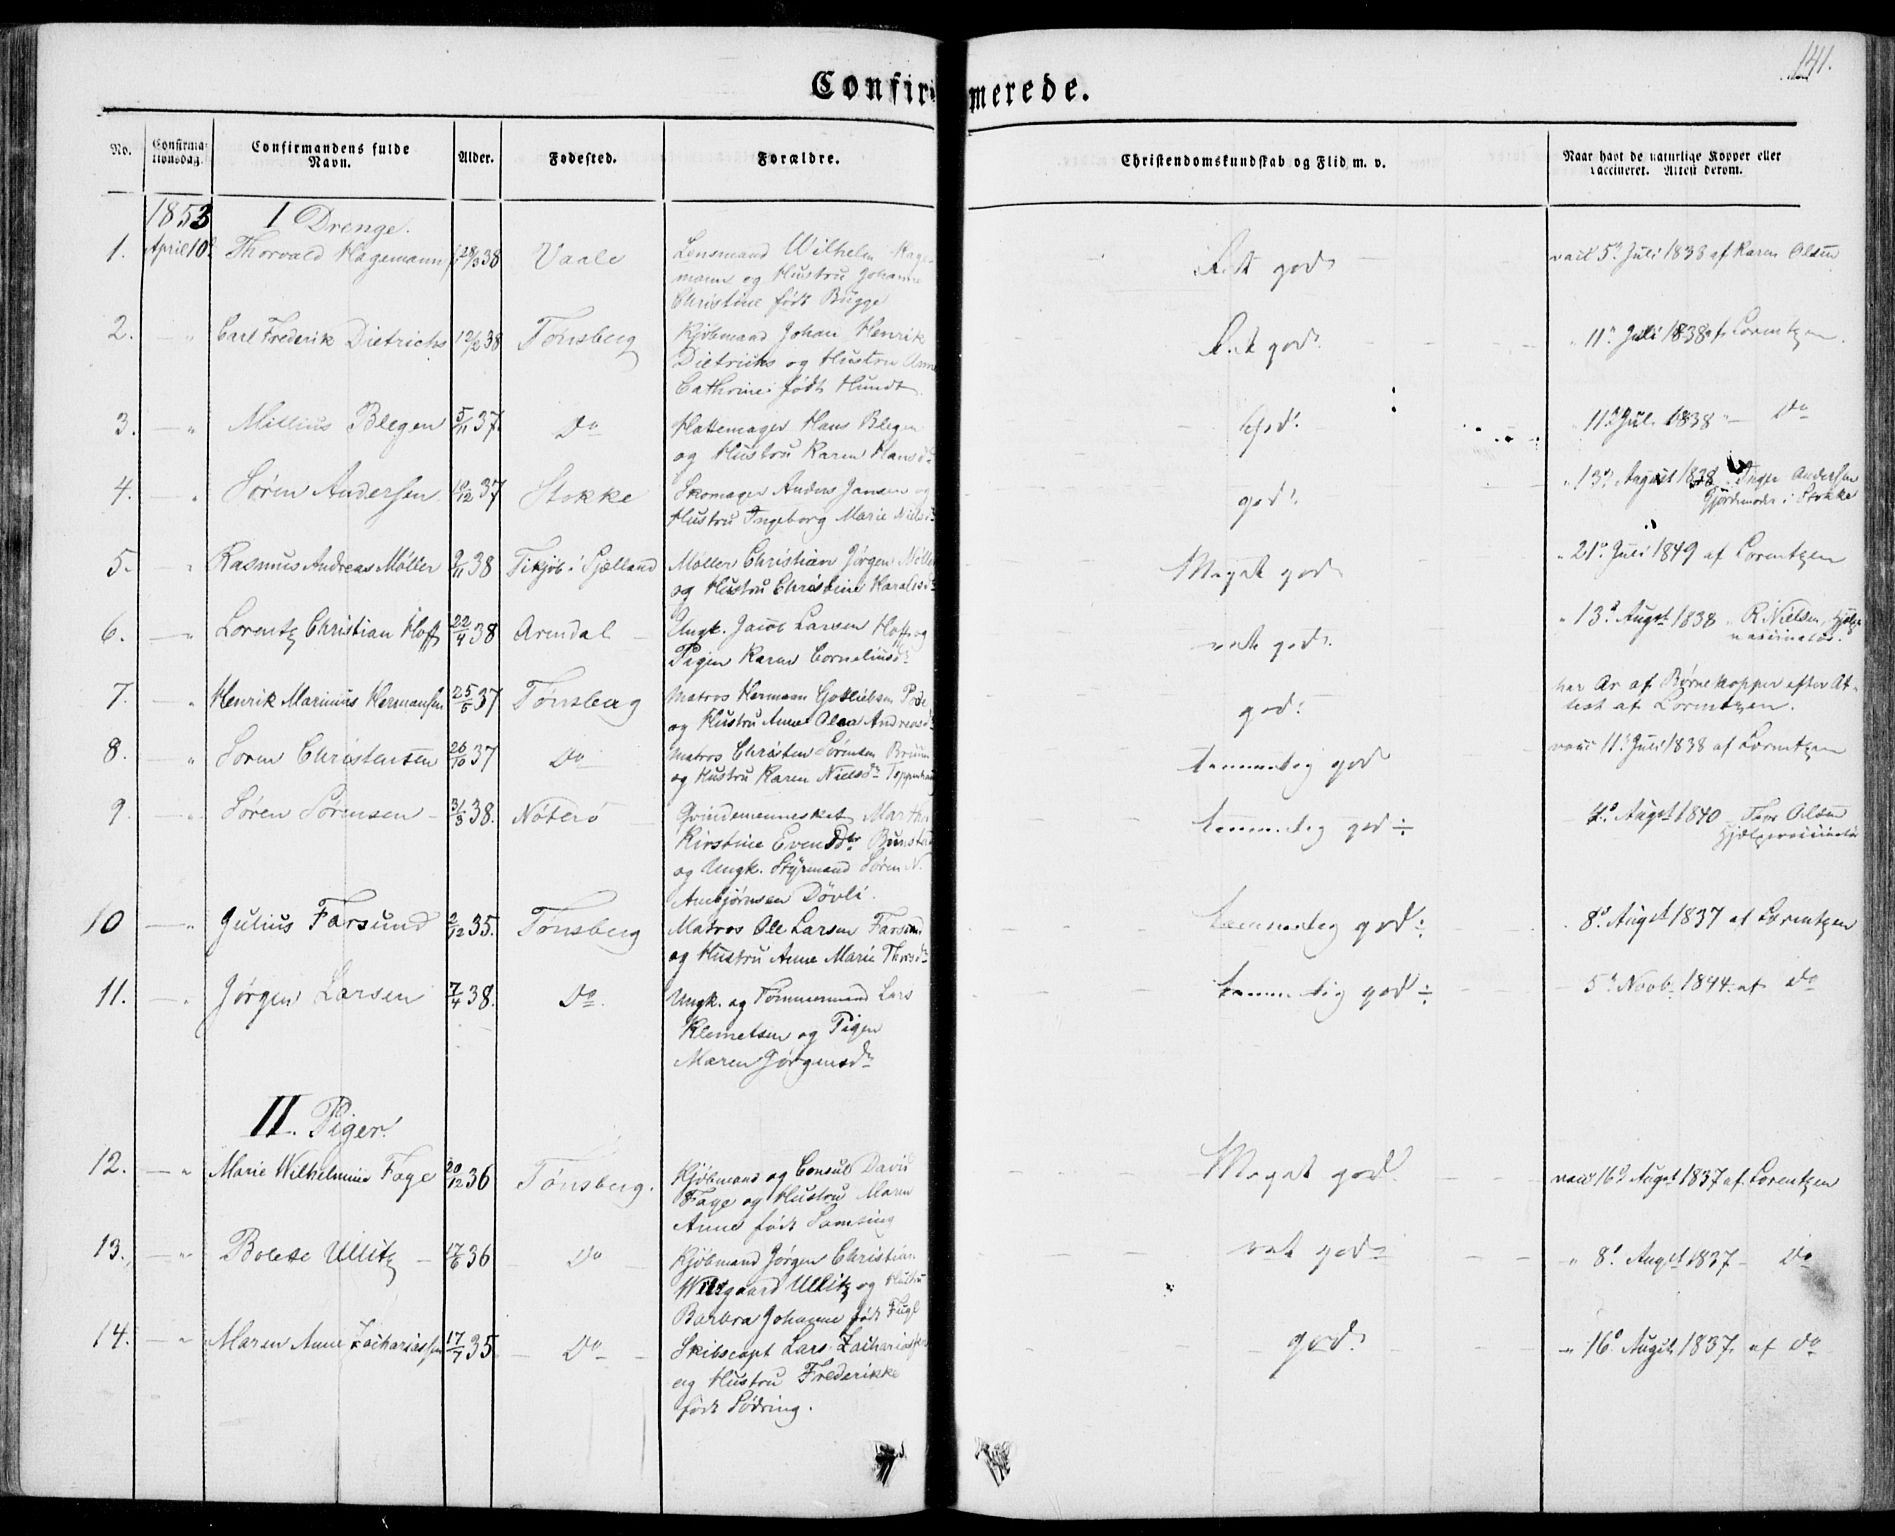 141.
Confirmerede.
No.
Confirmationsdag.
Confirmandens fulde Navn.
Alder.
Fødested.
Forældre.
Christendomskundskab og Flid m. v.
Naar havt de naturlige Kopper eller vaccineret. Attest derom.
1853
I Drenge.
1. April 10d Thorvald Hagemann 38 Vaale
Lensmand Wilhelm Hage-
mann og Hustru Johanne
Christine født Bugge
god
5d Juli 1838 af Karen Olsen
2. — " Carl Frederik Dietrichs 38 Tønsberg
Kjøbmand Johan Henrik
Dietrichs og Hustru Anne
Cathrine født Hundt
god
" 11d Juli 1838 af Lorentzen.
3. — " Millius Blegen 5/11 37. Do
Hattemager Hans Blegen
og Hustru Karen Hansdr
God.
" 11d Juli 1838 " — Do
4. — " Søren Andersen 37 Stokke
Skomager Anders Jansen og
Hustru Ingeborg Marie Nielsdr
god.
" 13d August 1838 Andersen
Gjordemoder i Stokke
5. — " Rasmus Andreas Møller 9/11 38 Tikjøb i Sjælland
Møller Christian Jørgen Møller
og Hustru Christine Haraldsdr
Meget god
" 21d Juli 1849 af Lorentzen
6. — " Lorentz Christian Hoff 22/4 38 Arendal —
Ungk. Jacob Larsen Hoff og
Pigen Karen Corneliusdr
god.
" 13d Augst 1838 " R. Nielsen, Hjelpe
vaccinatør.
7. — " Henrik Marinius Hermansen 25/5 37 Tønsberg
Matros Hermann Gotliebsen
og Hustru Anne Olea Andreasdr
god.
har Ar af Børnekopper efter At-
test af Lorentzen.
8. — " Søren Christensen 26/10 37 Do
Matros Christen Sørensen Bruun
og Hustru Karen Nielsdr
temmelig god
vacc 11d Juli 1838 af Lorentzen
9. — " Søren Sørensen — 31/3 38. Nøterø —
Qvindemennesket Marthe
Kirstine Evensdtr
og Ungk. Styrmand Søren N.
Ambjørnsen Døvle.
temmelig god ÷
— 4d Augst 1840 Olsen
Hjælpevaccinatør
10 — " Julius Farsund 2/12 35. Tønsberg
Matros Ole Larsen Farsund
og Hustru Anne Marie Thorsdr
temmelig god ÷
" 8d Augst 1837 af Lorentzen
11. — " Jørgen Larsen 7/4 38. Do.
Ungk. og Tømmermand Lars
Klemetsen og Pigen
Maren Jørgensdr
temmelig god ÷
— 5d Novb. 1844. af Do
II. Piger.
12. — " Marie Wilhelmine Foye 20/12 36 Tønsberg.
Kjøbmand og Consul David
Foye og Hustru Maren
Anne født Samsing
Meget god.
vacc 16d Augst 1837 af Lorentzen
13. — " Bolette Ullitz — 17/6 36 Do
Kjøbmand Jørgen Christian
Ullitz og Hustru
Barbra Johanne født Fugl
god
— " 8d Augst 1837 — Do
14. — " Maren Anne Zachariassen 17/7 35. — Do —
Skibscapt Lars Zachariassen
og Hustru Frederikke
født Sødring.
god.
— " 16d Augst 1837. af Do